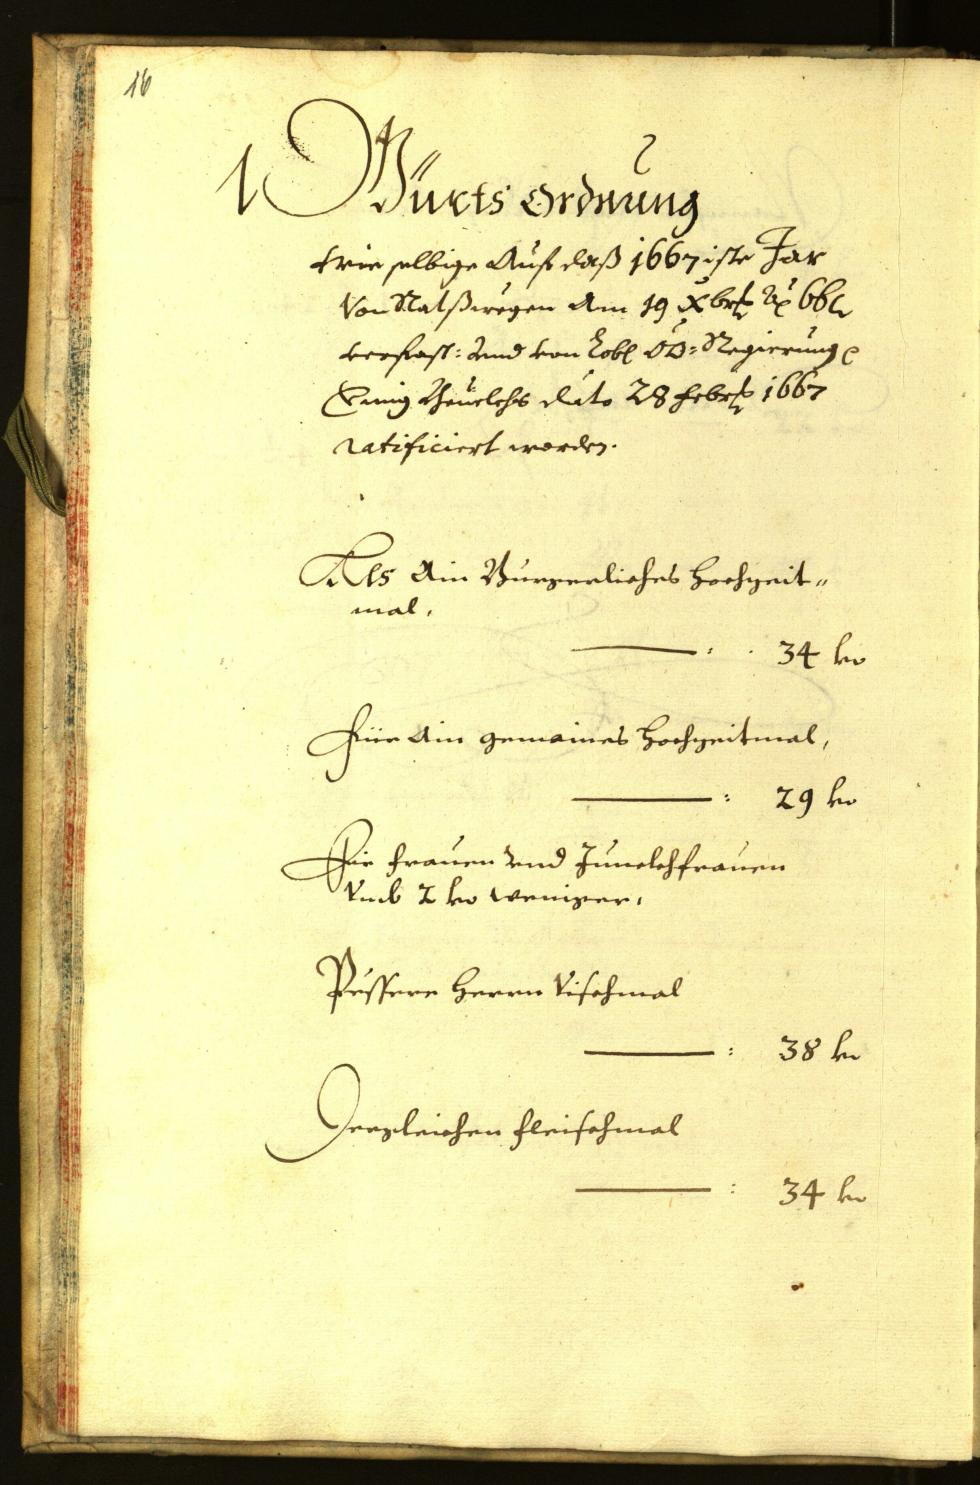 16
Würts Ordnung
wie selbige Auf daß 1667iste Jar
Von Ratßwegen Am 19 Xbris Aõ 66
verfast: Und von Lobl OÖ: Regierung
dato 28 Febris 1667
ratificiert worden.
Als Ain Burgerliches Hochzeit„
mal,
34 kr
Für Ain gemaines Hochzeitmal,
29 kr
Die Frauen Und Junckhfrauen
Umb 2 kr weniger,
Pessere Herrn Vischmal
38 kr
Dergleichen Fleischmal
34 kr